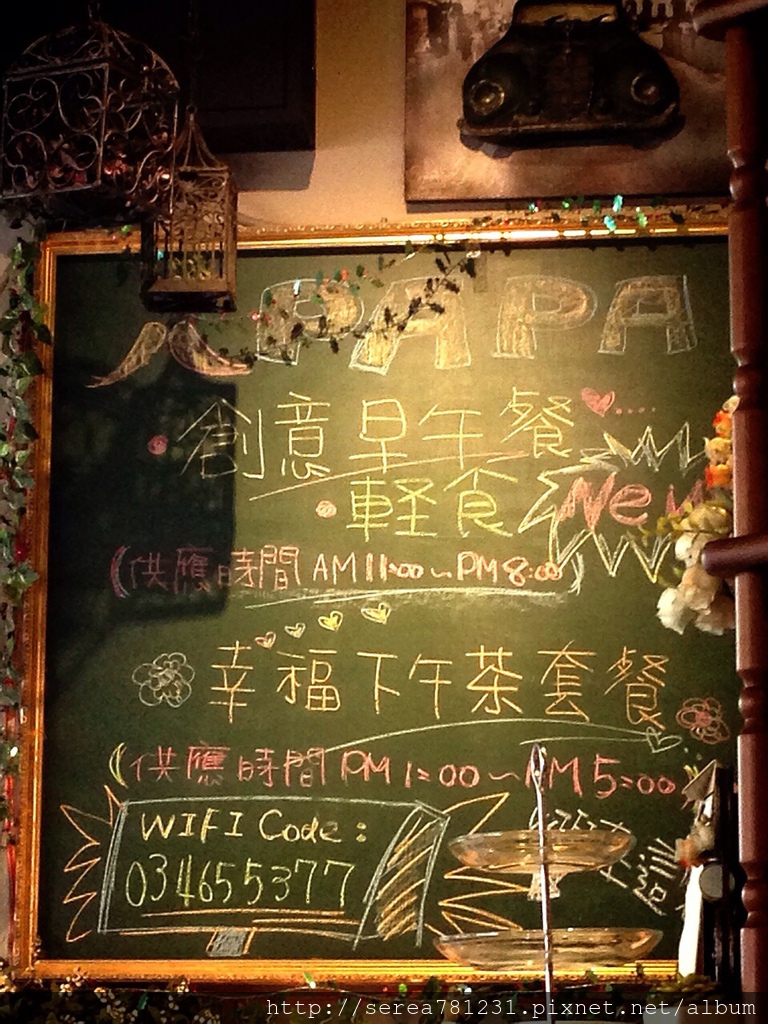 PAPA
創意早午餐
軽食 New
(供應時間 AM11:00~PM8:00)
幸福下午茶套餐
(供應時間 PM1:00~PM5:00)
WIFI Code:
034655377
http://serea781231.pixnet.net/album